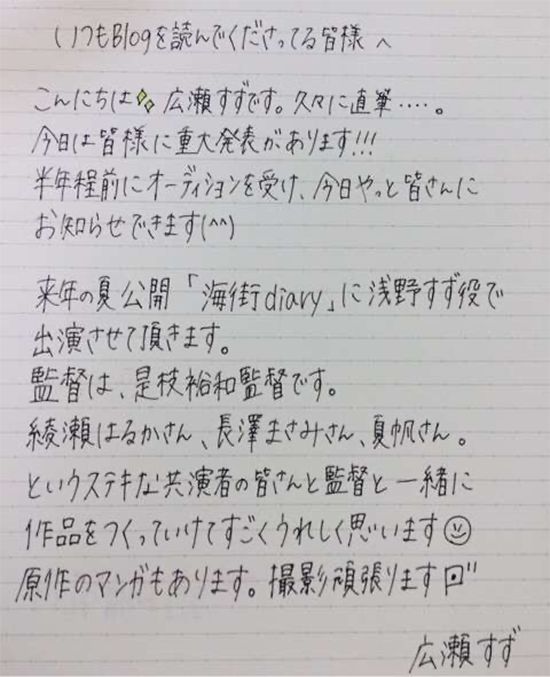 いつもBlogを読んでくださってる皆様へ
こんにちは 広瀬すずです。久々に直筆....。
今日は皆様に重大発表があります!!!
半年程前にオーディションを受け、今日やっと皆さんに
お知らせできます(^^)
来年の夏公開「海街diary」に浅野すず役で
出演させて頂きます。
監督は、是枝裕和監督です。
綾瀬はるかさん、長澤まさみさん、夏帆さん。
というステキな共演者の皆さんと監督と一緒に
作品をつくっていけてすごくうれしく思います
原作のマンガもあります。撮影頑張ります
広瀬すず